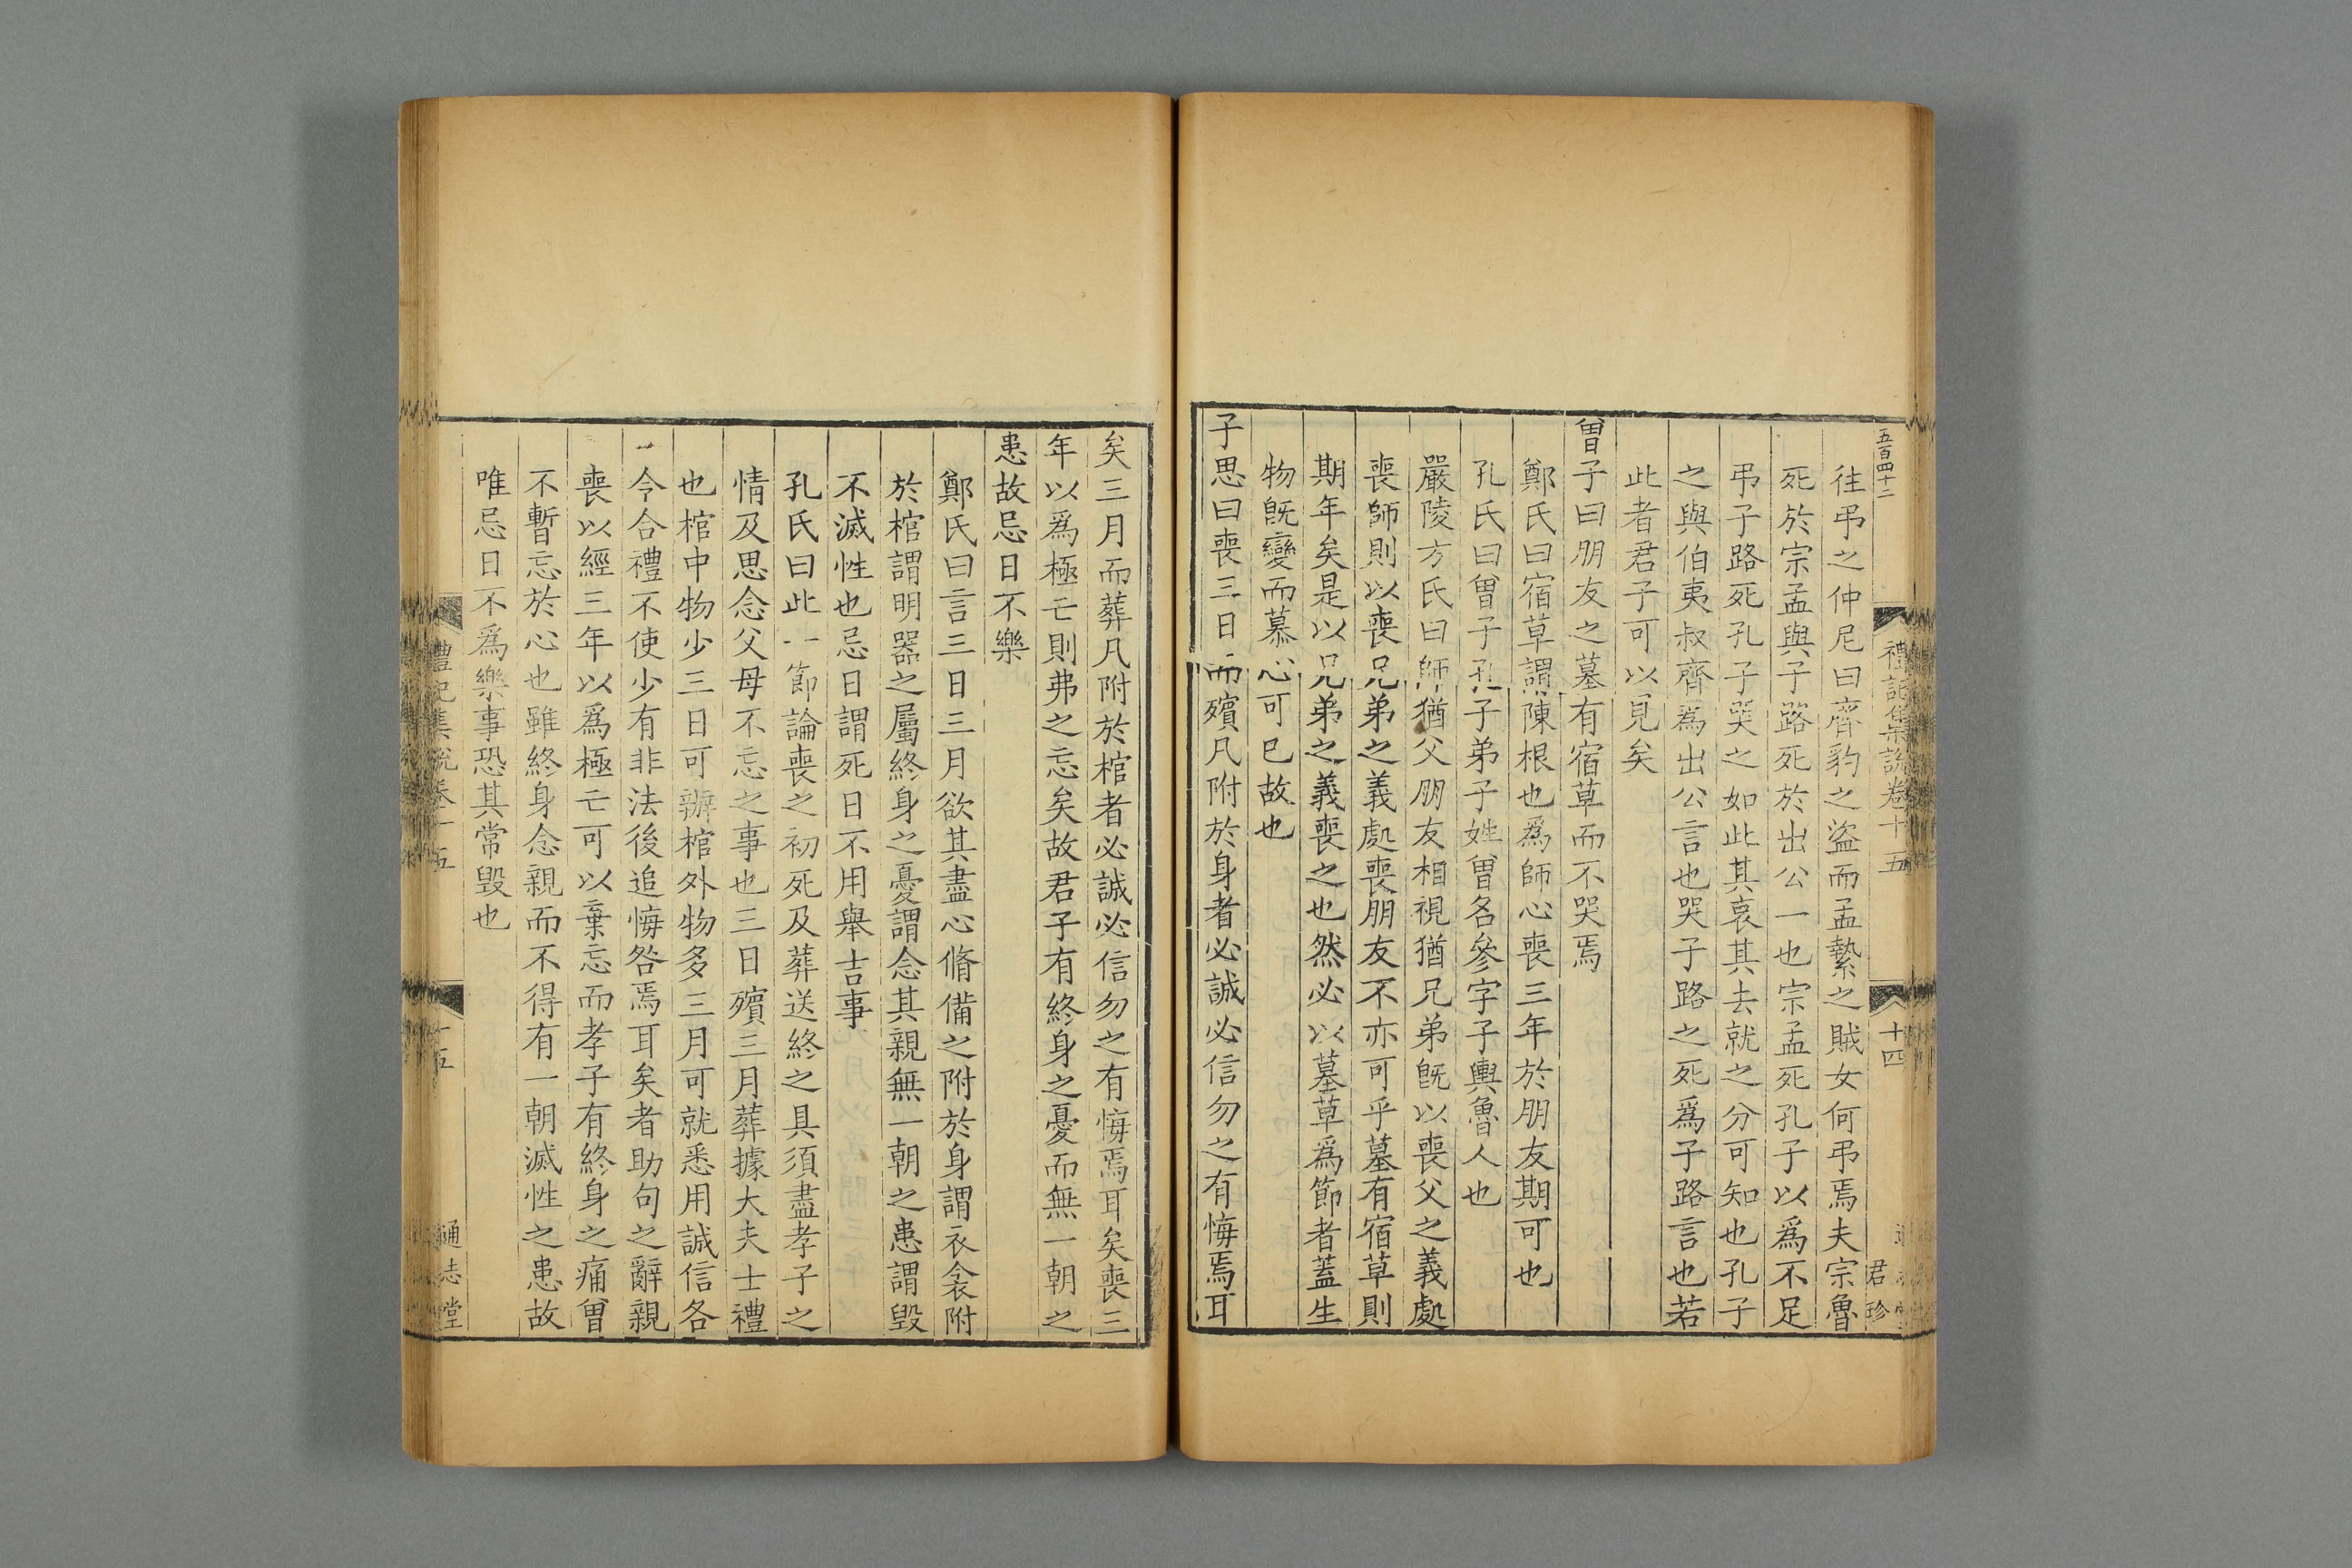 五百四十二
禮記集說卷十五
十四
君珍
往弔之仲尼曰齊豹之盜而孟縶之賊女何弔焉夫宗魯
死於宗孟與子路死於出公一也宗孟死孔子以爲不足
弔子路死孔子哭之如此其哀其去就之分可知也孔子
之與伯夷叔齊爲出公言也哭子路之死爲子路言也若
此者君子可以見矣
曾子曰朋友之墓有宿草而不哭焉
鄭氏曰宿草謂陳根也爲師心喪三年於朋友期可也
孔氏曰曾子孔子弟子姓曾名參字子輿魯人也
嚴陵方氏曰師猶父朋友相視猶兄弟旣以喪父之義處
喪師則以喪兄弟之義處喪朋友不亦可乎墓有宿草則
期年矣是以兄弟之義喪之也然必以墓草爲節者蓋生
物旣變而慕心可已故也
子思曰喪三日而殯凡附於身者必誠必信勿之有悔焉耳
矣三月而葬凡附於棺者必誠必信勿之有悔焉耳矣喪三
年以爲極亡則弗之忘矣故君子有終身之憂而無一朝之
患故忌日不樂
鄭氏曰言三日三月欲其盡心脩備之附於身謂衣衾附
於棺謂明器之屬終身之憂謂念其親無一朝之患謂毀
不滅性也忌日謂死日不用舉吉事
孔氏曰此一節論喪之初死及葬送終之具須盡孝子之
情及思念父母不忘之事也三日殯三月葬據大夫士禮
也棺中物少三日可辦棺外物多三月可就悉用誠信各
令合禮不使少有非法後追悔咎焉耳矣者助句之辭親
喪以經三年以爲極亡可以棄忘而孝子有終身之痛曾
不暫忘於心也雖終身念親而不得有一朝滅性之患故
唯忌日不爲樂事恐其常毀也
禮記集說卷十五
十五
通志堂